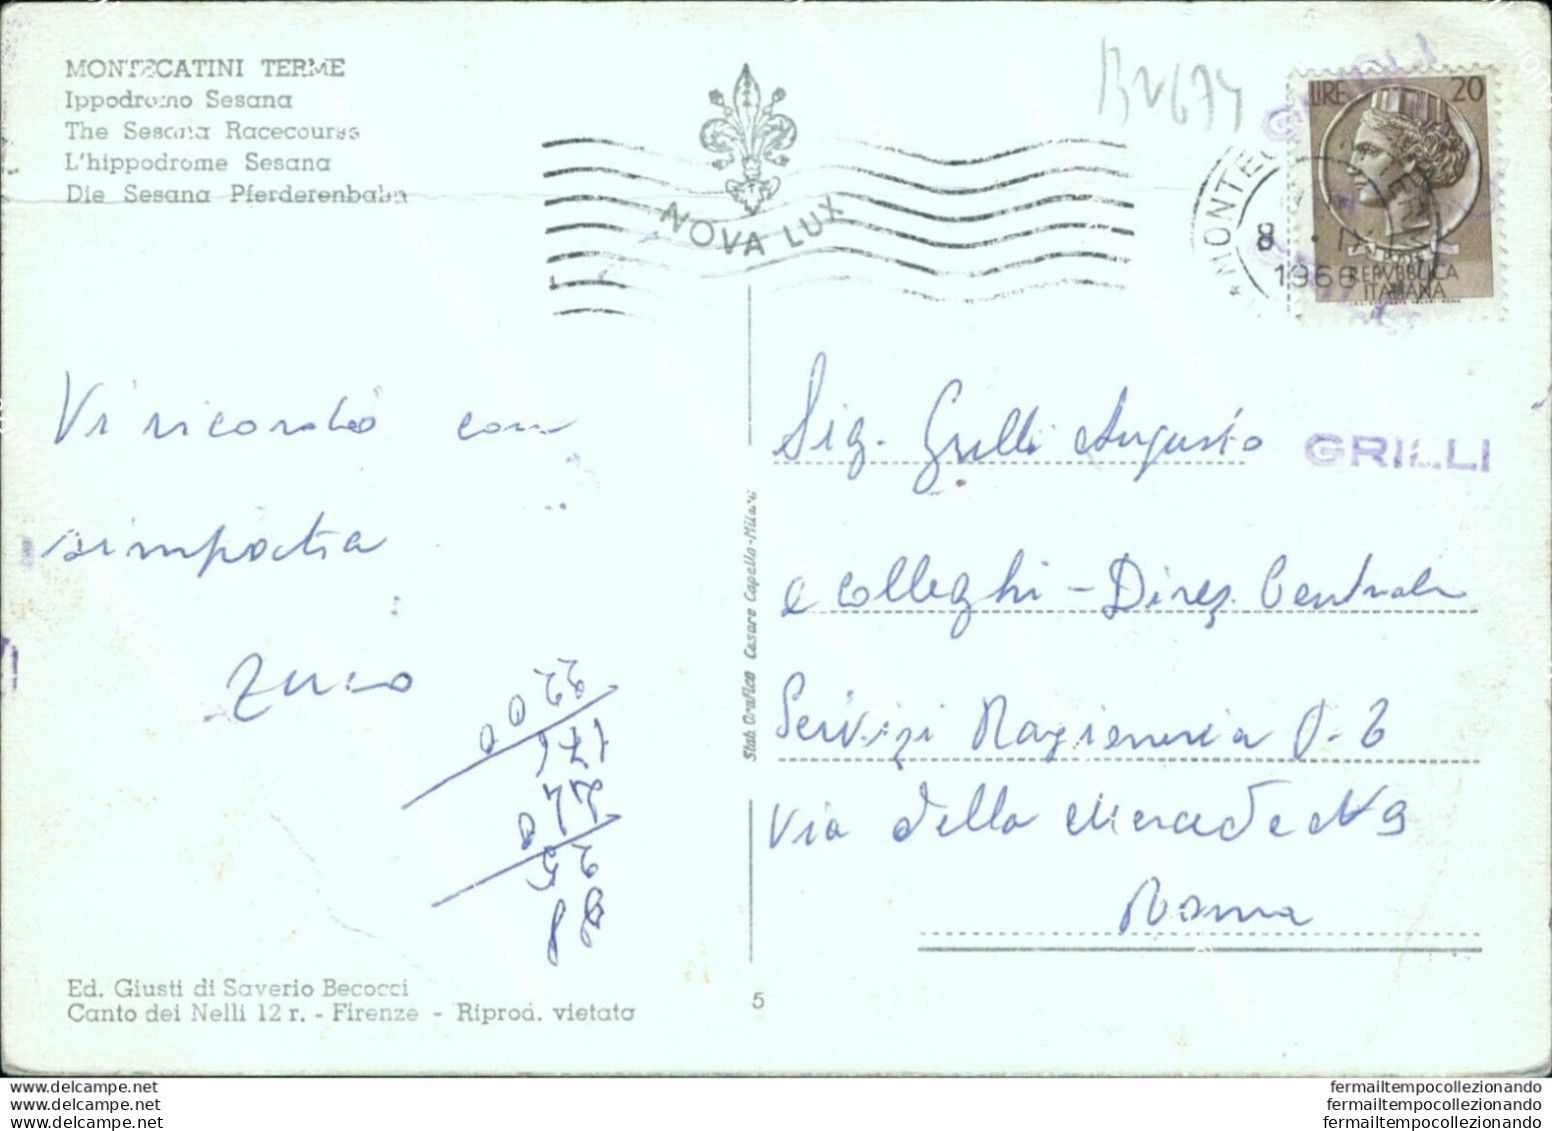 MONTECATINI TERME
Ippodromo Sesana
The Sesana Racecourse
L'hippodrome Sesana
Die Sesana Pferderenbahn
NOVA LUX
LIRE 20
REPVBBLICA
ITALIANA
8
1966
Vi ricordo con
simpatia
GRILLI
Sig. Grilli Augusto
e colleghi - Direz. Centrale
Servizi Ragioneria
Via della Mercede N 9
Roma
Stab. Grafico Cesare Capello-Milano
Ed. Giusti di Saverio Becocci
Canto dei Nelli 12 r. - Firenze - Riprod. vietata
5
delcampe.net
delcampe.net
delcampe.net
fermailtempocollezionando
fermailtempocollezionando
fermailtempocollezionando